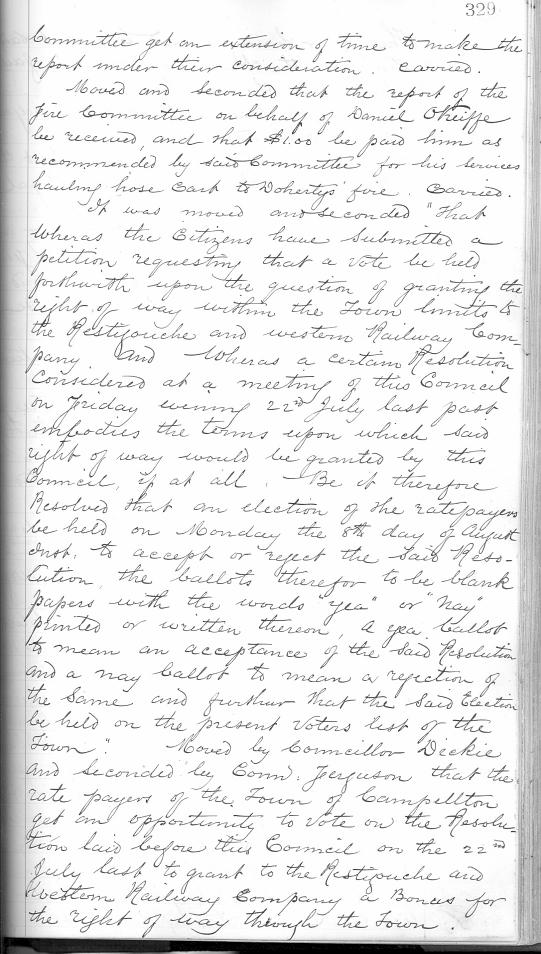 329
Committee get an extension of time to make the
report under their consideration. Carried.
Moved and Seconded that the report of the
Fire Committee on behalf of Daniel OKeiffe
be received, and that $1.00 be paid him as
recommended by said Committee for his services
hauling hose Cart to Doherty's fire. Carried.
It was moved and seconded "That
Wheras the Citizens have submitted a
petition requesting that a vote be held
forthwith upon the question of granting the
right of way within the Town limits to
the Restigouche and western Railway Com-
pany. And Wheras a certain Resolution
Considered at a meeting of this Council
on Friday evening 22nd July last past
embodies the terms upon which said
right of way would be granted by this
Council, if at all. Be it therefore
Resolved that an election of the ratepayers
be held on Monday the 8th day of August
Inst. to accept or reject the said Reso-
lution, the ballots therefor to be blank
papers with the words "yea" or "Nay"
printed or written thereon, a yea ballot
to mean an acceptance of the said Resolution
and a nay ballot to mean a rejection of
the Same and further that the said Election
be held on the present Voters list of the
Town". Moved by Councillor Dickie
and Seconded by Coun. Ferguson that the
rate payers of the Town of Campellton
get an opportunity to vote on the Resolu-
tion laid before this Council on the 22nd
July last to grant to the Restigouche and
Western Railway Company a Bonus for
the right of way through the Town.